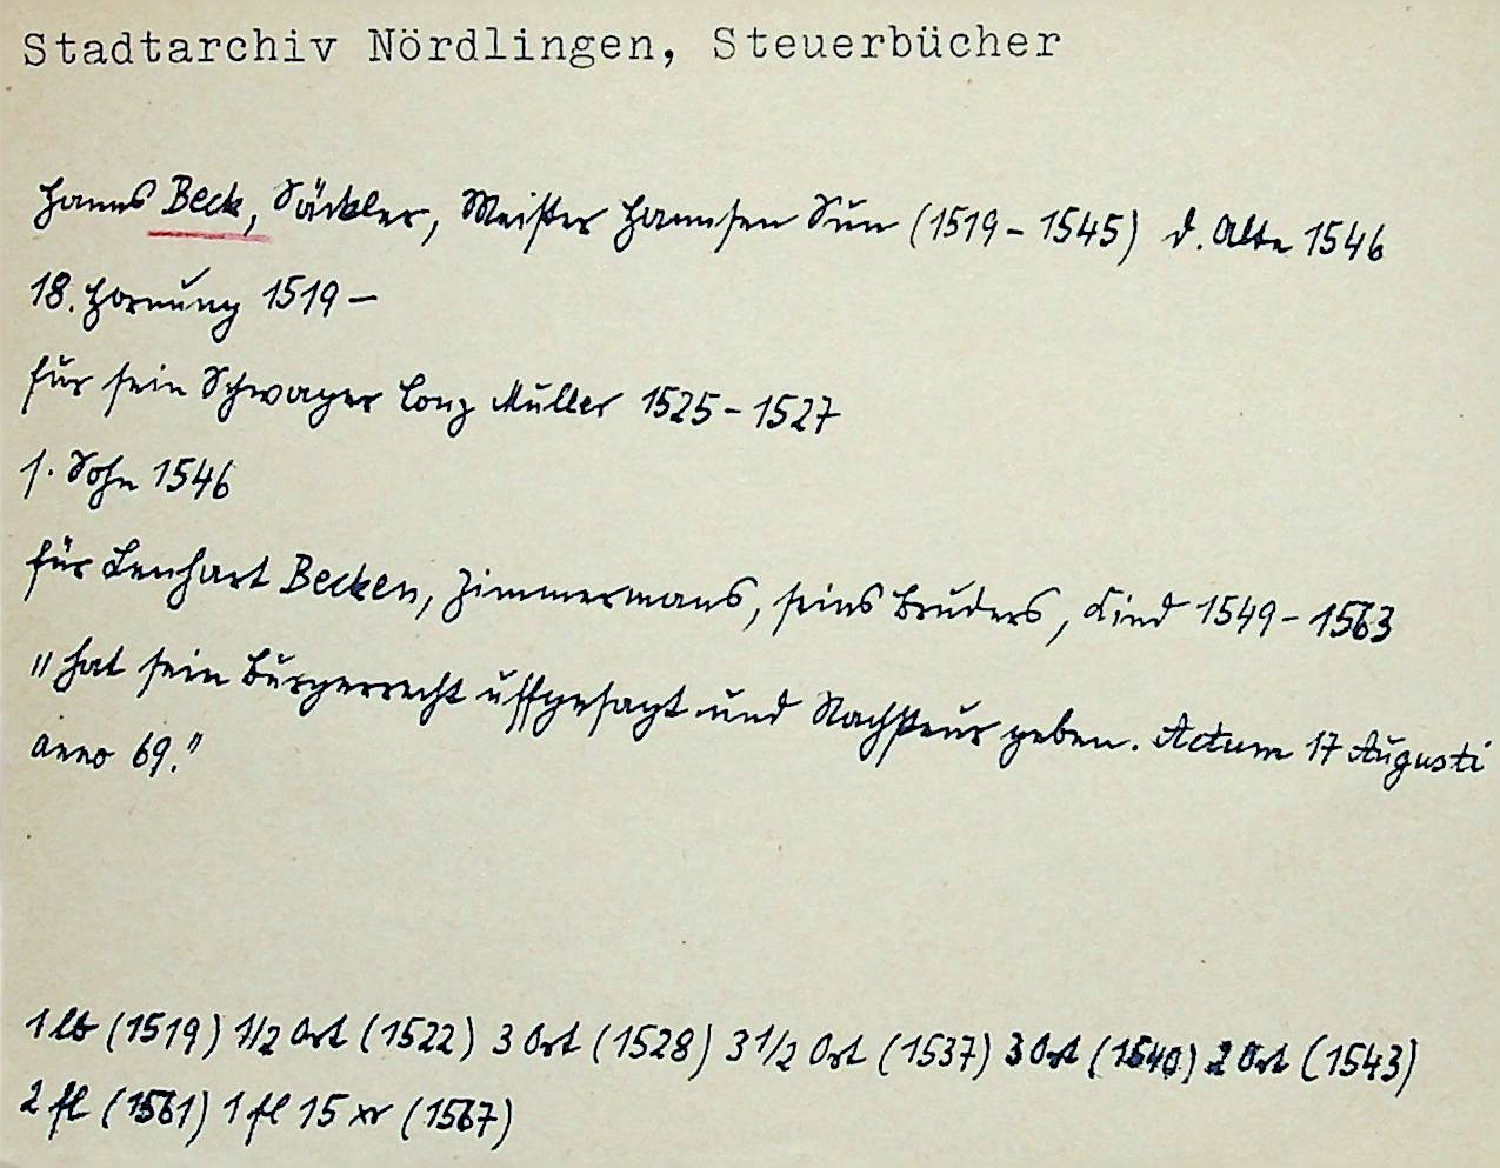 Stadtarchiv Nördlingen, Steuerbücher
Hanns Beck, Säckler, Meister Hannsen Sun (1519 - 1545) d. Alte 1546
18. Hornung 1519 –
für sein Schwager Lonz Müller 1525 - 1527
1. Sohn 1546
für Lenhart Becken, Zimmermans, seins Bruders, Kind 1549 - 1563
"hat sein Burgerrecht uffgesagt und Nachsteur geben. Actum 17 Augusti
anno 69."
1 lb (1519) 1/2 Ort (1522) 3 Ort (1528) 3 1/2 Ort (1537) 3 Ort (1540) 2 Ort (1543)
2 fl (1561) 1 fl 15 xr (1567)